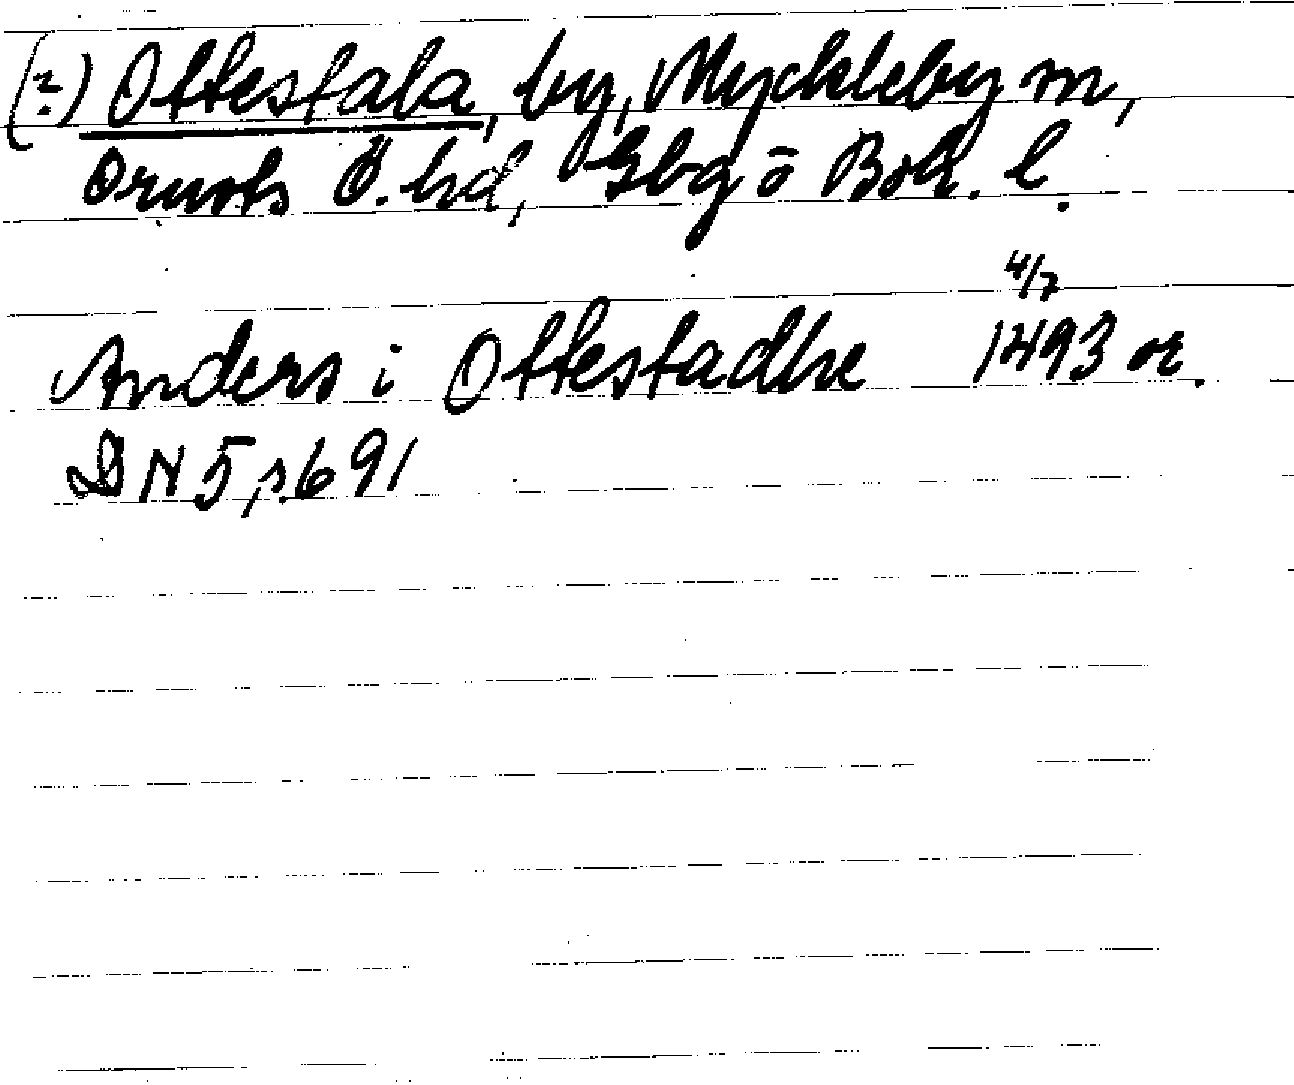 (?) Ottestala, by, Myckleby sn,
Orusts Ö. hd, Gbg o Boh. l.
4/7
Anders i Ottestadhe 1493 or.
DN 5, s. 691